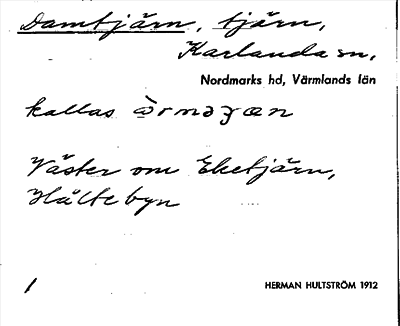 Damtjärn, tjärn,
Karlanda sn,
Nordmarks hd, Värmlands län
kallas
Väster om Eketjärn,
Hältebyn
1 HERMAN HULTSTRÖM 1912